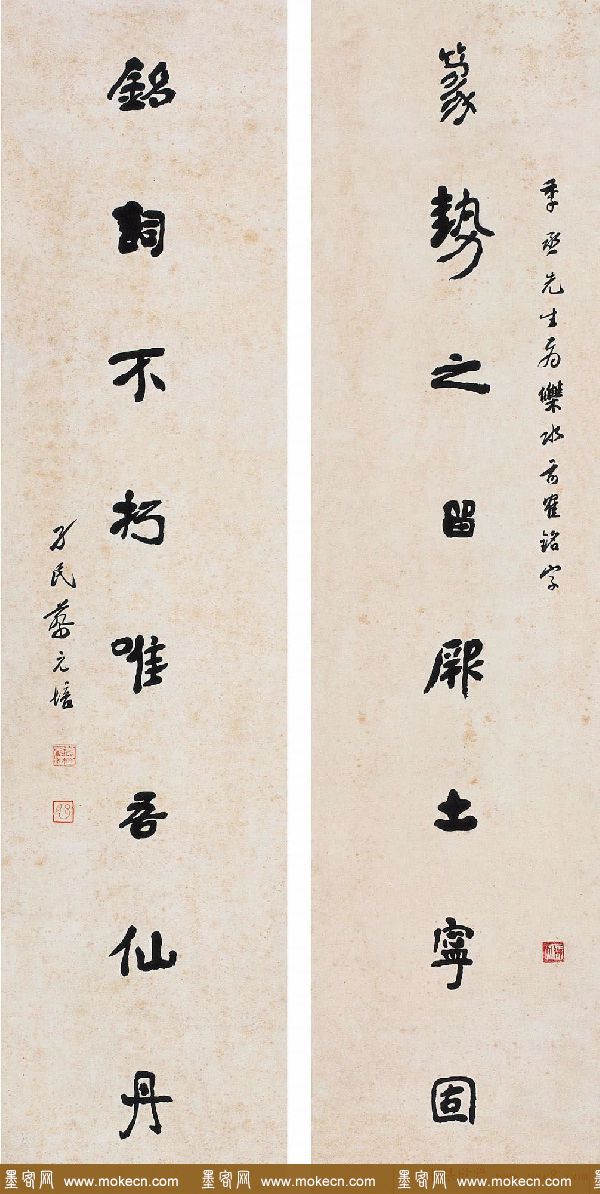 季丞先生水前寉銘字
篆勢之留厥土寧固
銘詞不朽唯吾仙丹
孑民蔡元培
墨客网 www.mokecn.com 墨客网 www.mokecn.com 墨客网 www.mokecn.com